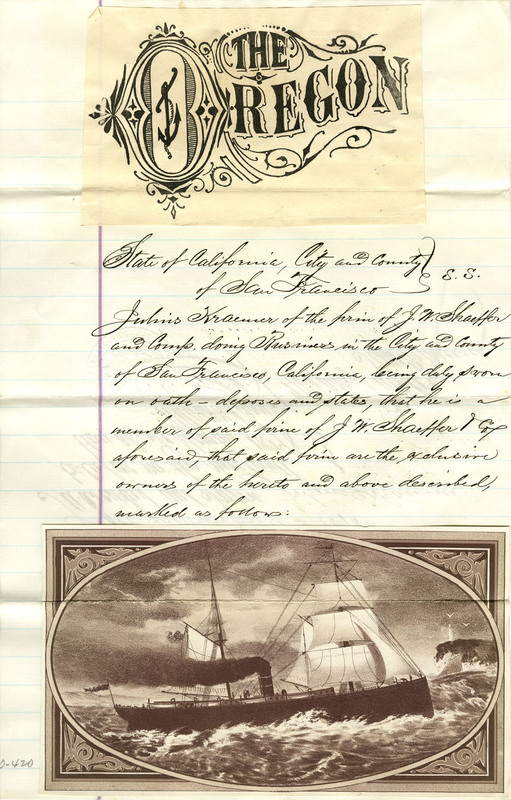 THE
OREGON
State of California, City and County
of San Francisco } S.S.
Julius Kraemer of the firm of J. W. Shaeffer
and Comp. doing Business in the City and County
of San Francisco, California, being duly sworn
on oath – deposes and states, that he is a
member of said firm of J. W. Shaeffer & Co
aforesaid, that said firm are the exclusive
owners of the hereto and above described,
marked as follow:
0-420